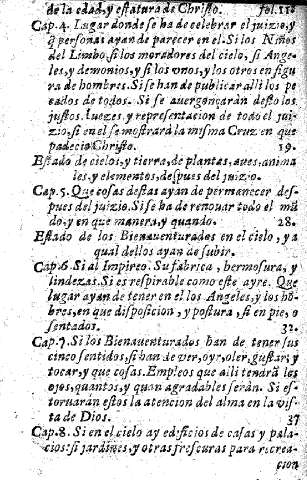 de la edad, y estatura de Christo. fol. 116
Cap. 4. Lugar donde se ha de celebrar el juizio, y
q̃ personas ayan de parecer en el. Si los Niños
del Limbo, si los moradores del cielo, si Ange-
les, y demonios, y si los vnos, y los otros en figu
ra de hombres. Si se han de publicar alli los pe
cados de todos. Si se auergonçaràn desto los
justos. Iuezes, y representacion de todo el jui-
zio, si en el se mostrarà la misma Cruz en que
padecio Christo. 19.
Estado de cielos, y tierra, de plantas, aues, anima
les, y elementos, despues del juizio.
Cap. 5. Que cosas destas ayan de permanecer des-
pues del juizio. Si se ha de renouar todo el mũ
do, y en que manera, y quando. 28.
Estado de los Bienauenturados en el cielo, y a
qual dellos ayan de subir.
Cap. 6. Si al Impireo. Su fabrica, hermosura, y
lindezas. Si es respirable como este ayre. Que
lugar ayan de tener en el los Angeles, y los hõ-
bres, en que disposicion, y postura, si en pie, o
sentados. 32.
Cap. 7. Si los Bienauenturados han de tener sus
cinco sentidos, si han de ver, oyr, oler, gustar, y
tocar, y que cosas. Empleos que alli tendrà los
ojos, quantos, y quan agradables seràn. Si es-
toruaràn estos la atencion del alma en la vis-
ta de Dios. 37
Cap. 8. Si en el cielo ay edificios de casas y pala-
cios: si jardines, y otras frescuras para recrea-
cion